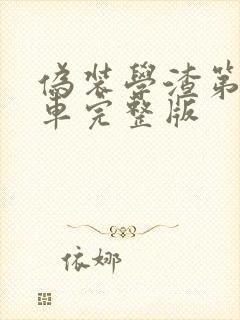 偽裝學渣第
車完整版
依娜